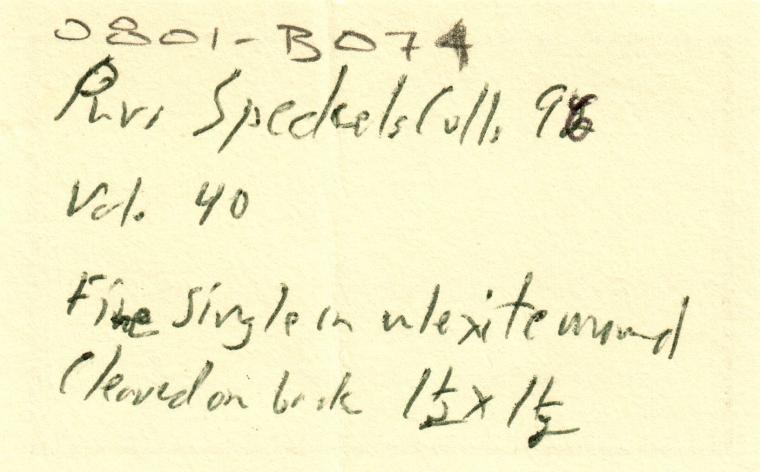 0801-B074
Pur. Speckels Coll. 98
Val. 40
Fine Single in ulexite mound
Cleaved on back 1½ x 1½